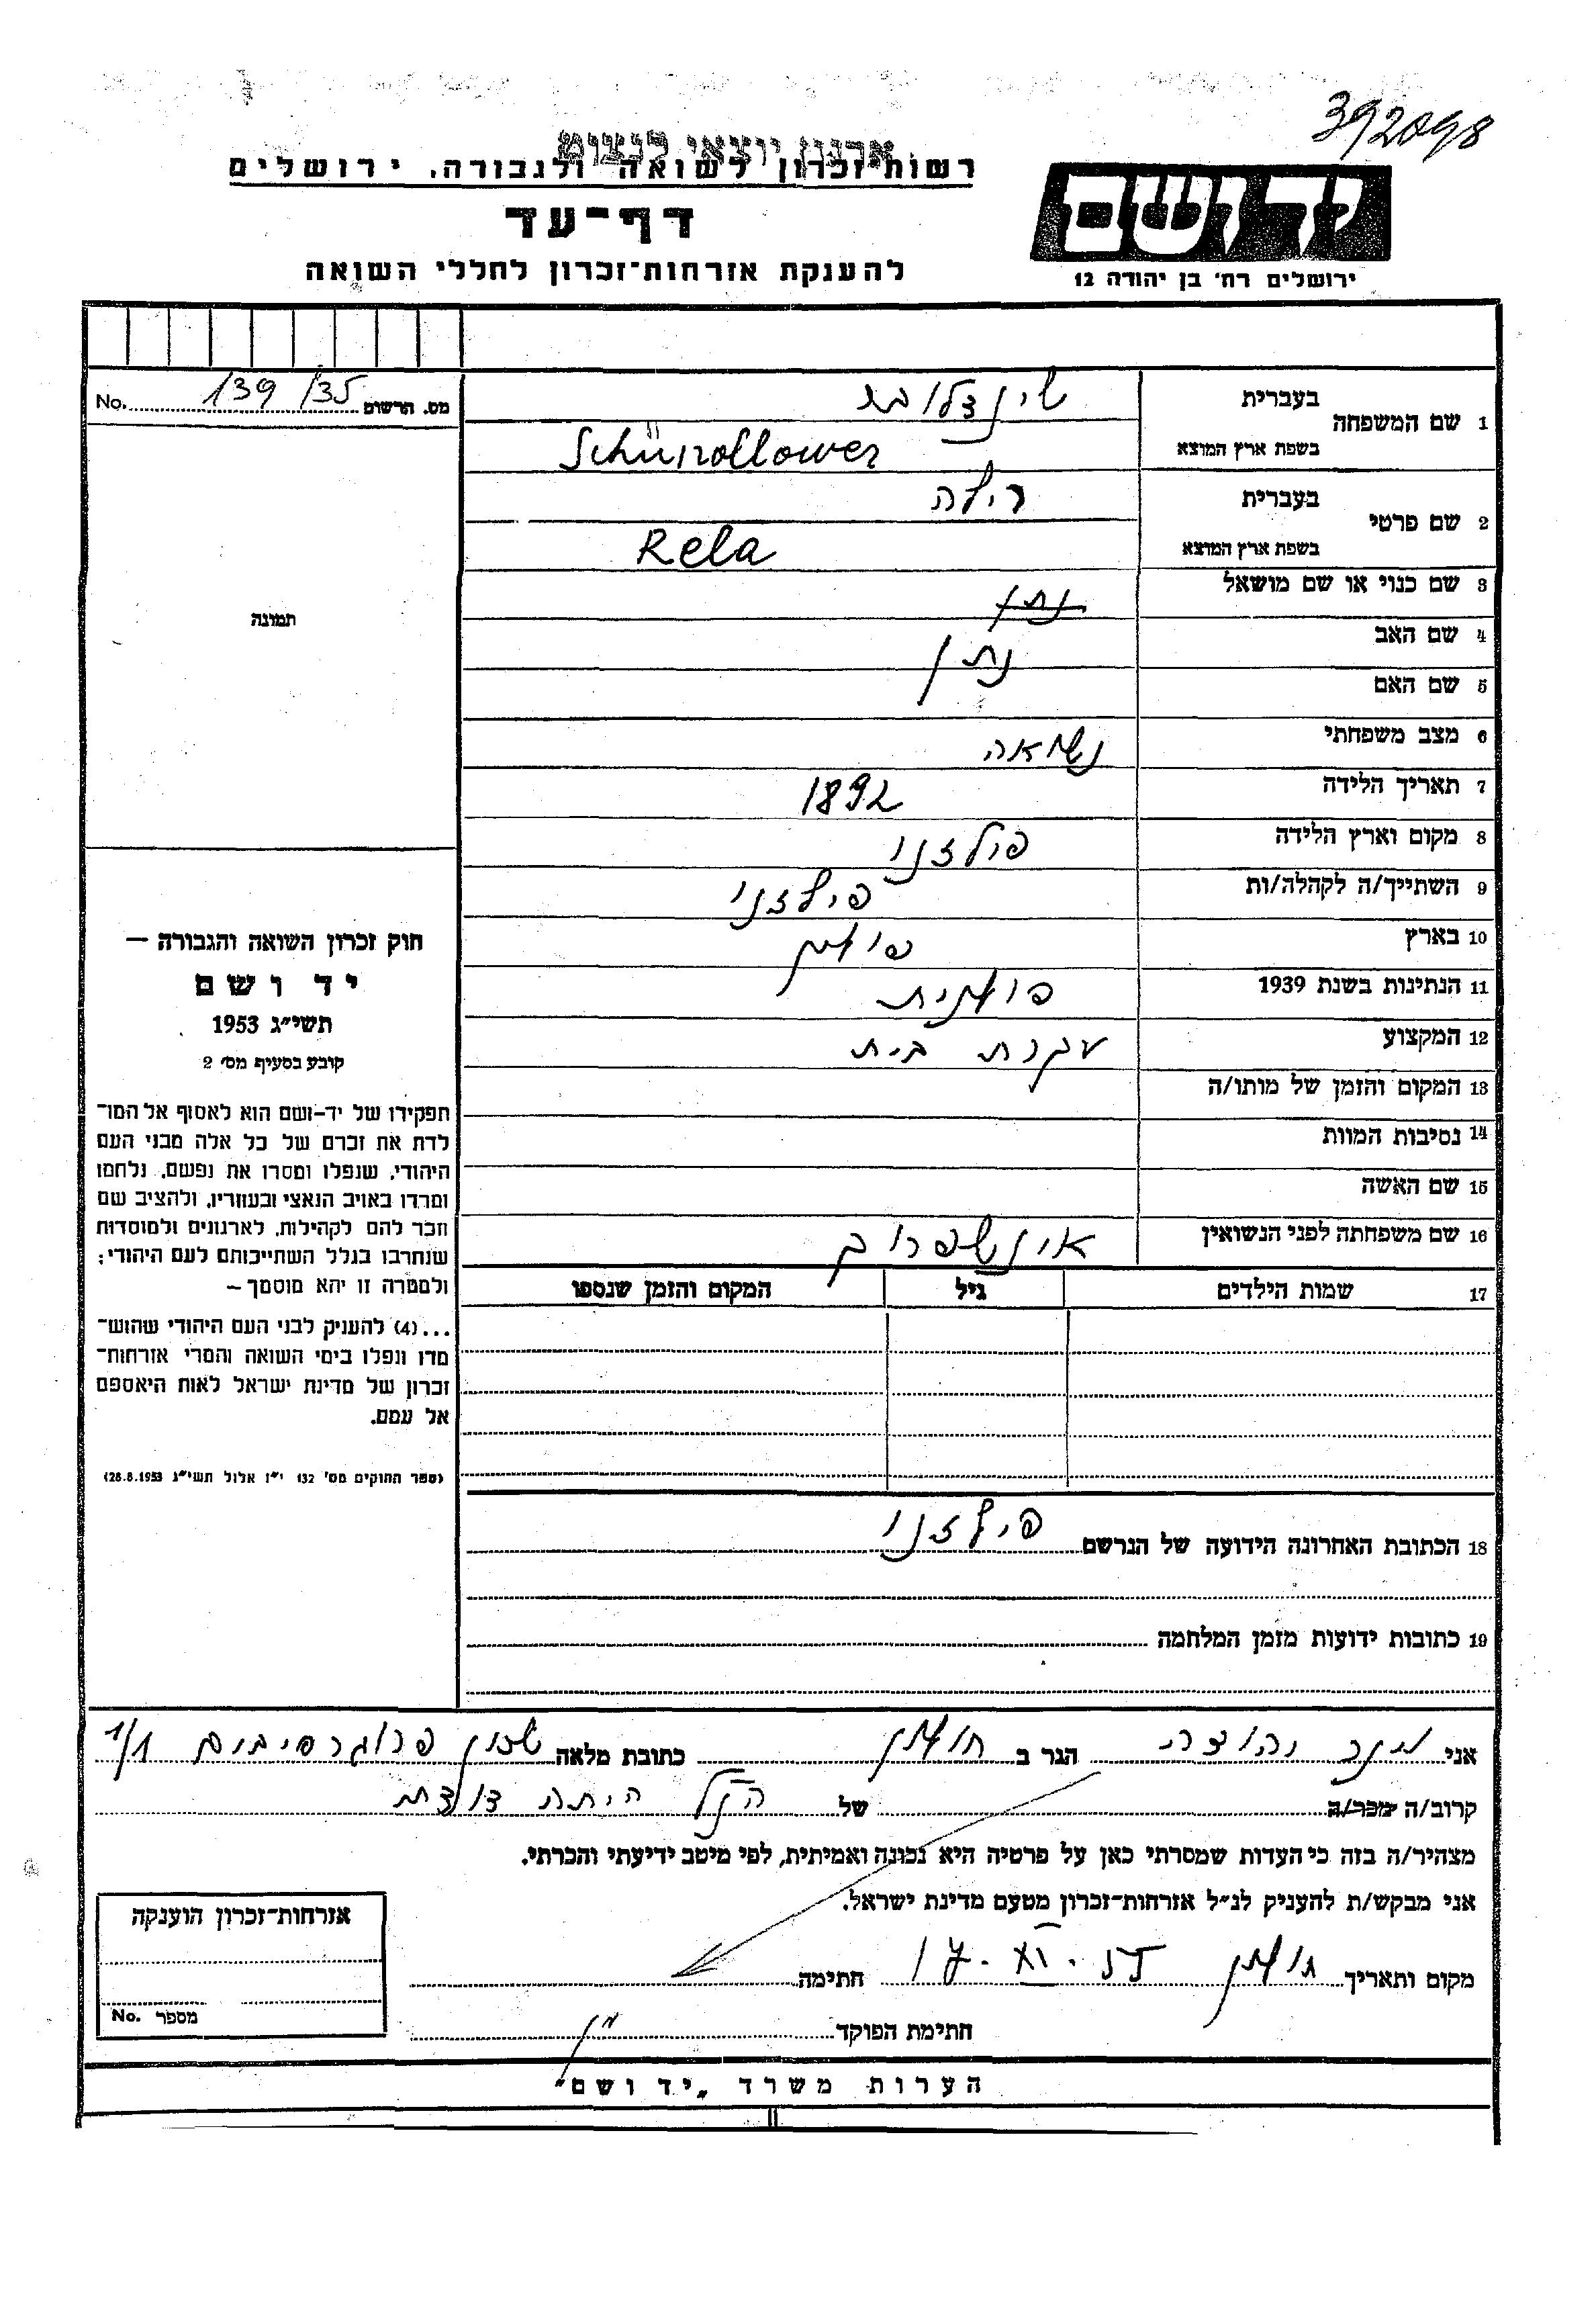 392098
ארגון יוצאי לנצוט
רשות זכרון לשואה ולגבורה, ירושלים
דף-עד
להענקת אזרחות-זכרון לחללי השואה
יד ושם
ירושלים רח' בן יהודה 12
מס. הרשום 139/35 No.
1 שם המשפחה
בעברית
בשפת ארץ המוצא
Schündllower
2 שם פרטי
בעברית רילה
בשפת ארץ המוצא Rela
3 שם כנוי או שם מושאל נתן
4 שם האב נתן
5 שם האם
6 מצב משפחתי נשואה
7 תאריך הלידה 1892
8 מקום וארץ הלידה פילזנו
9 השתייך/ה לקהלה/ות פילזנו
10 בארץ פולין
11 הנתינות בשנת 1939 פולנית
12 המקצוע עקרת בית
13 המקום והזמן של מותו/ה
14 נסיבות המוות
15 שם האשה
16 שם משפחתה לפני הנשואין
17 שמות הילדים גיל המקום והזמן שנספו
18 הכתובת האחרונה הידועה של הנרשם פילזנו
19 כתובות ידועות מזמן המלחמה
תמונה
חוק זכרון השואה והגבורה –
יד ושם
תשי"ג 1953
קובע בסעיף מס' 2
תפקידו של יד-ושם הוא לאסוף אל המו-
לדת את זכרם של כל אלה מבני העם
היהודי, שנפלו ומסרו את נפשם, נלחמו
ומרדו באויב הנאצי ובעוזריו, ולהציב שם
וזכר להם לקהילות, לארגונים ולמוסדות
שנחרבו בגלל השתייכותם לעם היהודי;
ולמטרה זו יהא מוסמך –
...(4) להעניק לבני העם היהודי שהוש-
מדו ונפלו בימי השואה והמרי אזרחות-
זכרון של מדינת ישראל לאות היאספם
אל עמם.
(ספר החוקים מס' 132 י"ז אלול תשי"ג 28.8.1953)
אני יהודה הגר ב חולון כתובת מלאה שכון פרוגרסיבים 1/1
קרוב/ה מכר/ה של הנ"ל היתה דודתי
מצהיר/ה בזה כי העדות שמסרתי כאן על פרטיה היא נכונה ואמיתית, לפי מיטב ידיעתי והכרתי.
אני מבקש/ת להעניק לנ"ל אזרחות-זכרון מטעם מדינת ישראל.
מקום ותאריך חולון 17.XI.55 חתימה
חתימת הפוקד
אזרחות-זכרון הוענקה
מספר No.
הערות משרד "יד ושם"